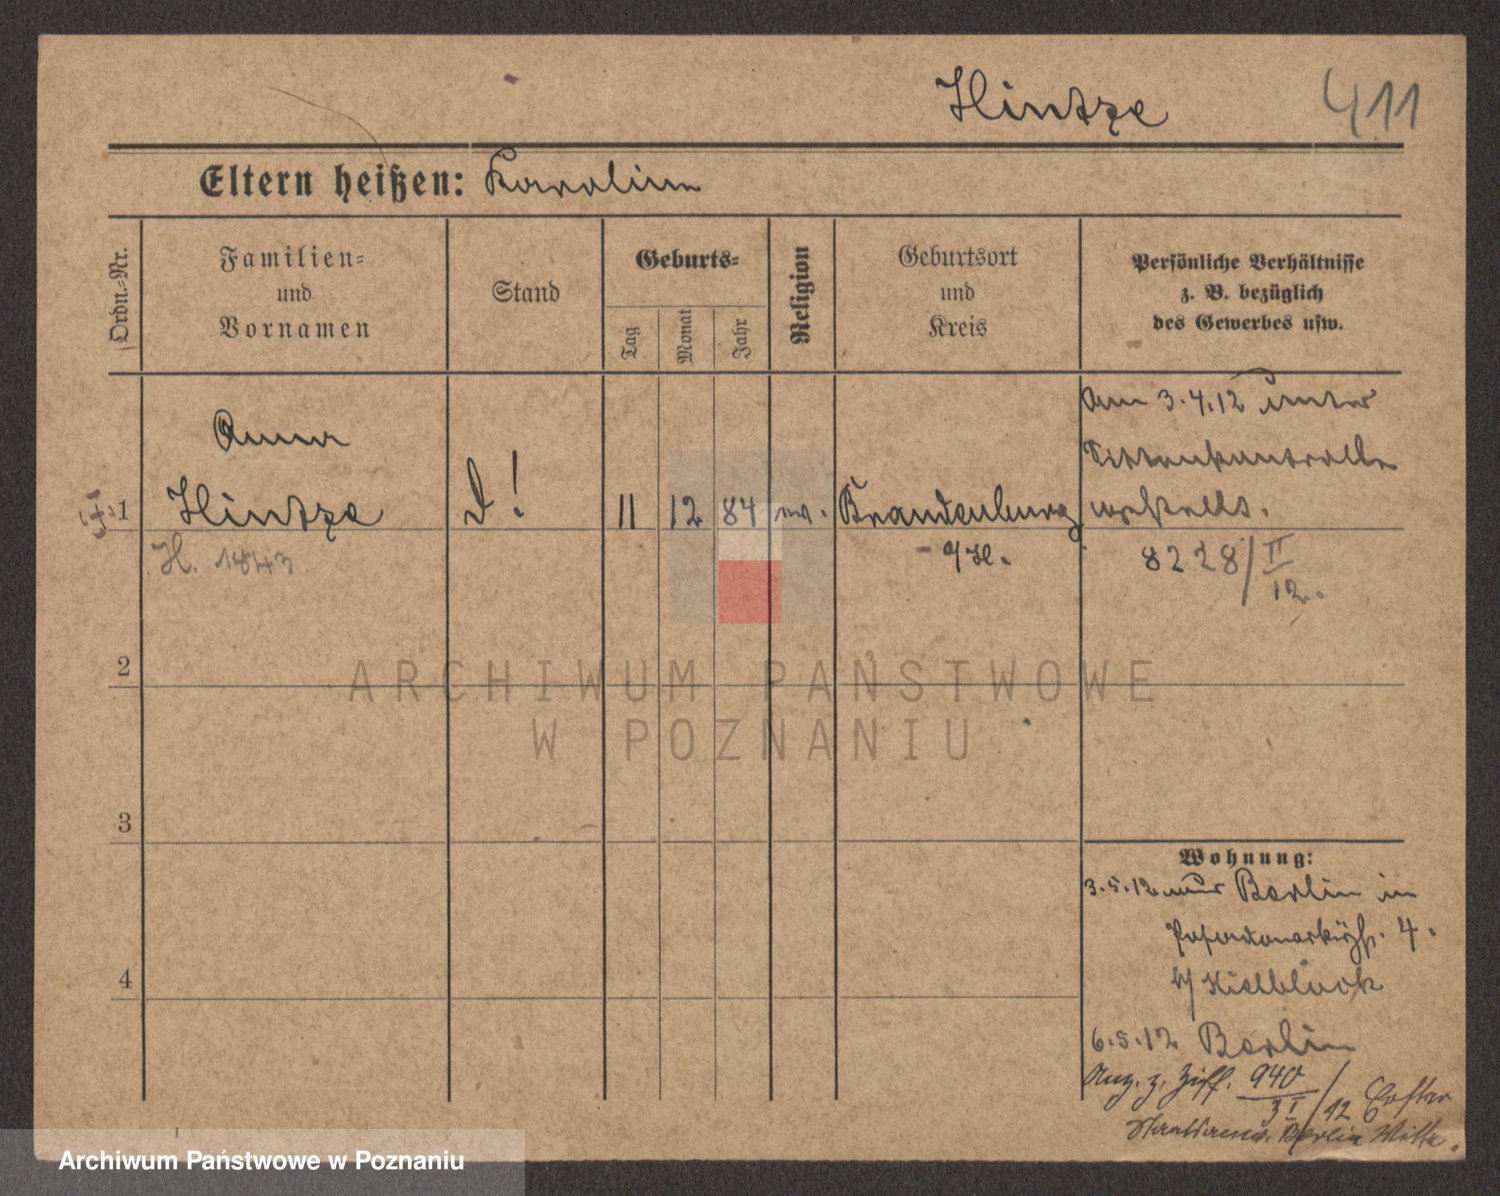 Hintze 411
Eltern heißen: Karoline
Ordn.-Nr.
Familien-
und
Vornamen
Stand
Geburts-
Tag
Monat
Jahr
Religion
Geburtsort
und
Kreis
Persönliche Verhältnisse
z. B. bezüglich
des Gewerbes usw.
Am 3.4.12 unter
Sittenkontrolle
gestellt.
8228/II
12.
Anna
1 Hintze D! 11 12 84 ev. Brandenburg
a/H.
H. 1843
2
3
4
ARCHIWUM PAŃSTWOWE
W POZNANIU
Wohnung:
3.5.12 aus Berlin in
4.
b/ Kielblock
6.5.12 Berlin
Anz. z. Ziff. 940
3 I /12
Berlin
Archiwum Państwowe w Poznaniu